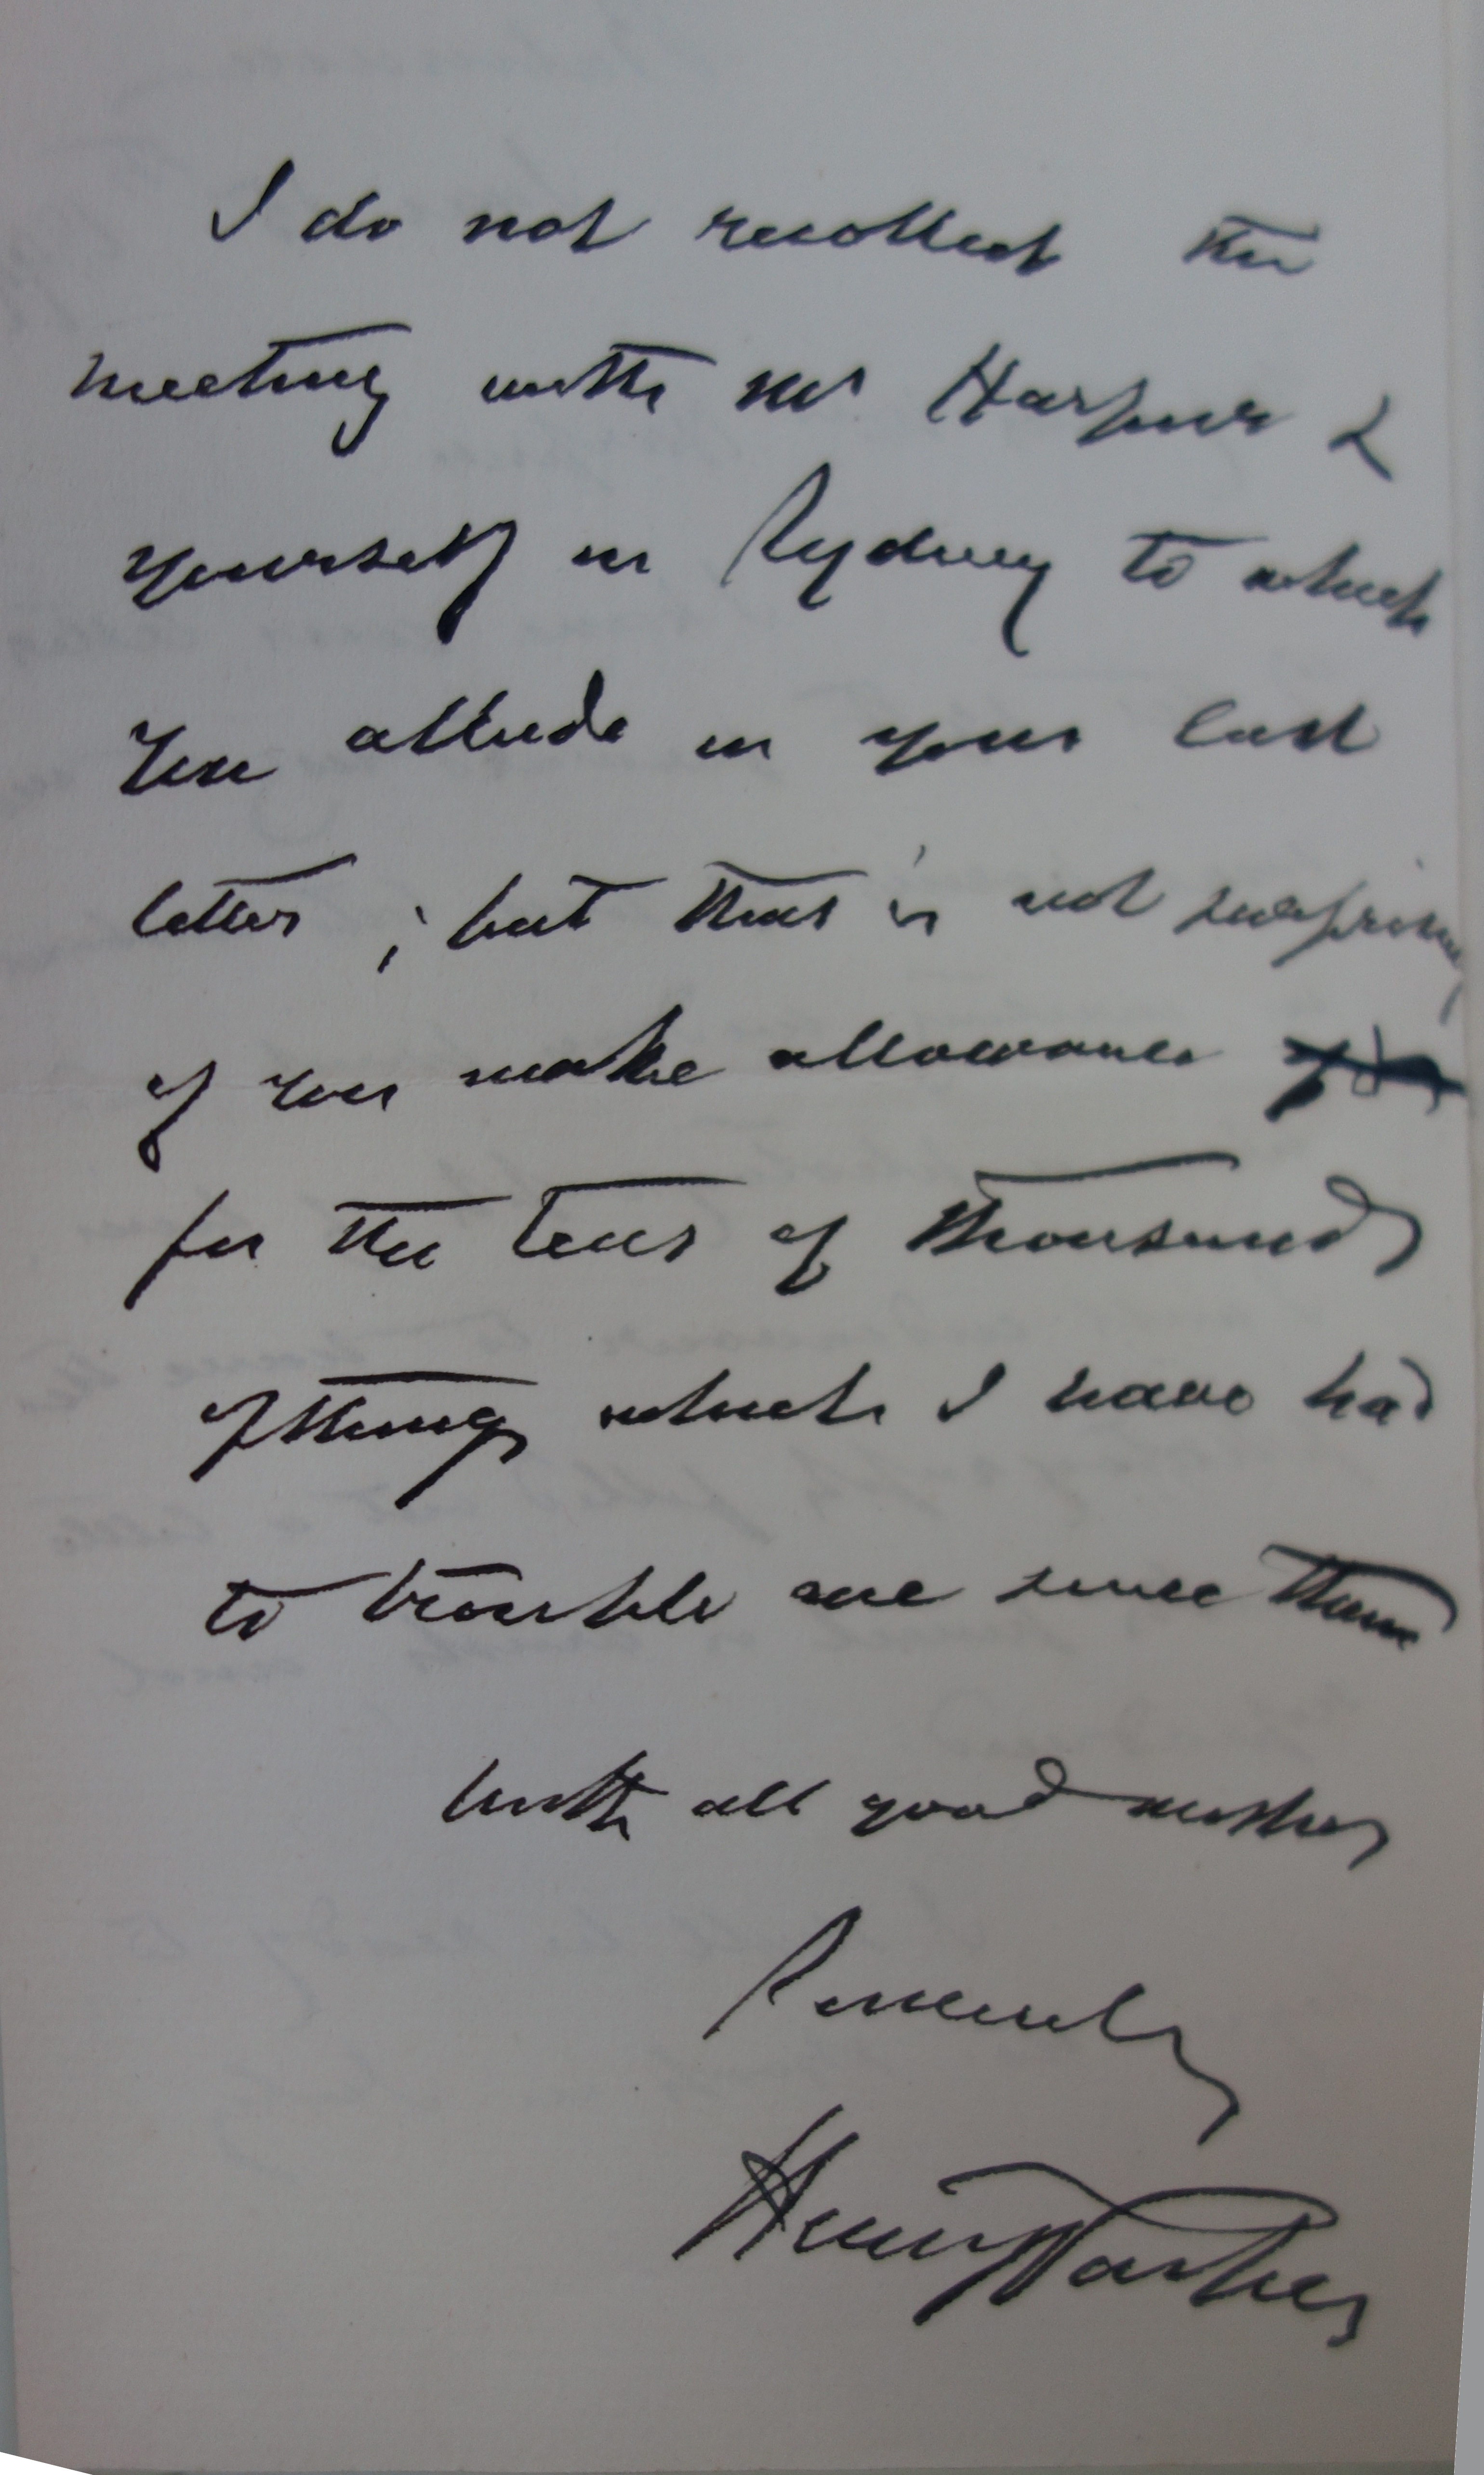 I do not recollect the
meeting with Mr Harpur &
yourself in Sydney to which
you allude in your last
letter; but this is not surprising
if you make allowance
for the tens of thousands
of things which I have had
to trouble me since then
With all good wishes
Sincerely
Henry Parkes